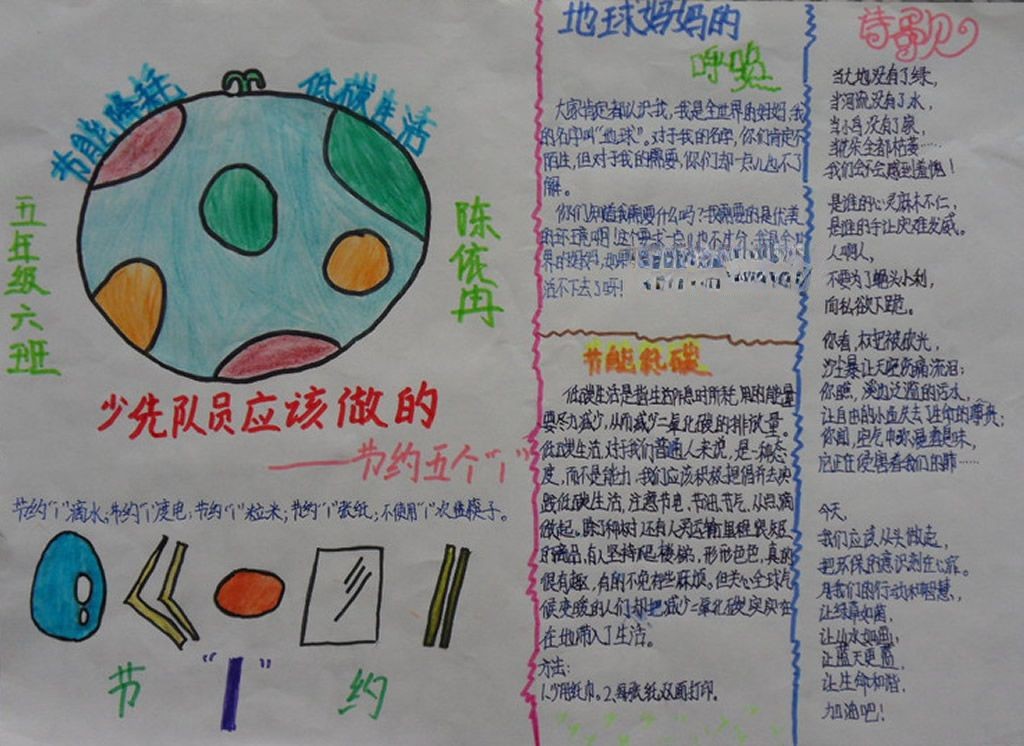 节能降耗
低碳生活
五年级六班
陈依冉
少先队员应该做的
——节约五个“1”
节约“1”滴水，节约“1”度电，节约“1”粒米，节约“1”张纸，不使用“1”次性筷子。
节“1”约
地球妈妈的
呼唤
大家肯定都认识我，我是全世界的妈妈，我
的名字叫“地球”。对于我的名字，你们肯定不
陌生，但对于我的需要，你们却一点儿也不了
解。
你们知道我需要什么吗？我需要的是优美
的环境啊！这个要求一点儿也不过分，我是全世
界的妈妈，如果
活不下去了呀！
节能耗碳
低碳生活是指生活作息时所耗用的能量
要尽力减少，从而减少二氧化碳的排放量。
低碳生活，对于我们普通人来说，是一种态
度，而不是能力，我们应该积极提倡并去实
践低碳生活，注意节电、节油、节气，从点滴
做起。除了种树，还有人买运输里程很短
的商品，有人坚持爬楼梯，形形色色，真的
很有趣，有的不免有些麻烦。但关心全球气
候变暖的人们却把减少二氧化碳实实在
在地带入了生活。
方法：
1.少用纸巾。2.每张纸双面打印。
诗歌
当大地没有了绿，
当河流没有了水，
当小鸟没有了家，
当花朵全都枯萎……
我们会不会感到羞愧！
是谁的心灵麻木不仁，
是谁的手让灾难发威。
人啊人，
不要为了蝇头小利，
向私欲下跪。
你看，树把被砍光，
沙尘暴让天空伤痛流泪；
你瞧，溪边泛滥的污水，
让自由的小鱼失去了生命的尊贵；
你闻，空气中弥漫着臭味，
它正在侵害着我们的肺……
今天，
我们应该从头做起，
把环保的意识刻在心扉。
用我们的行动和智慧，
让绿草如茵，
让山水如画，
让蓝天更蓝，
让生命和谐，
加油吧！